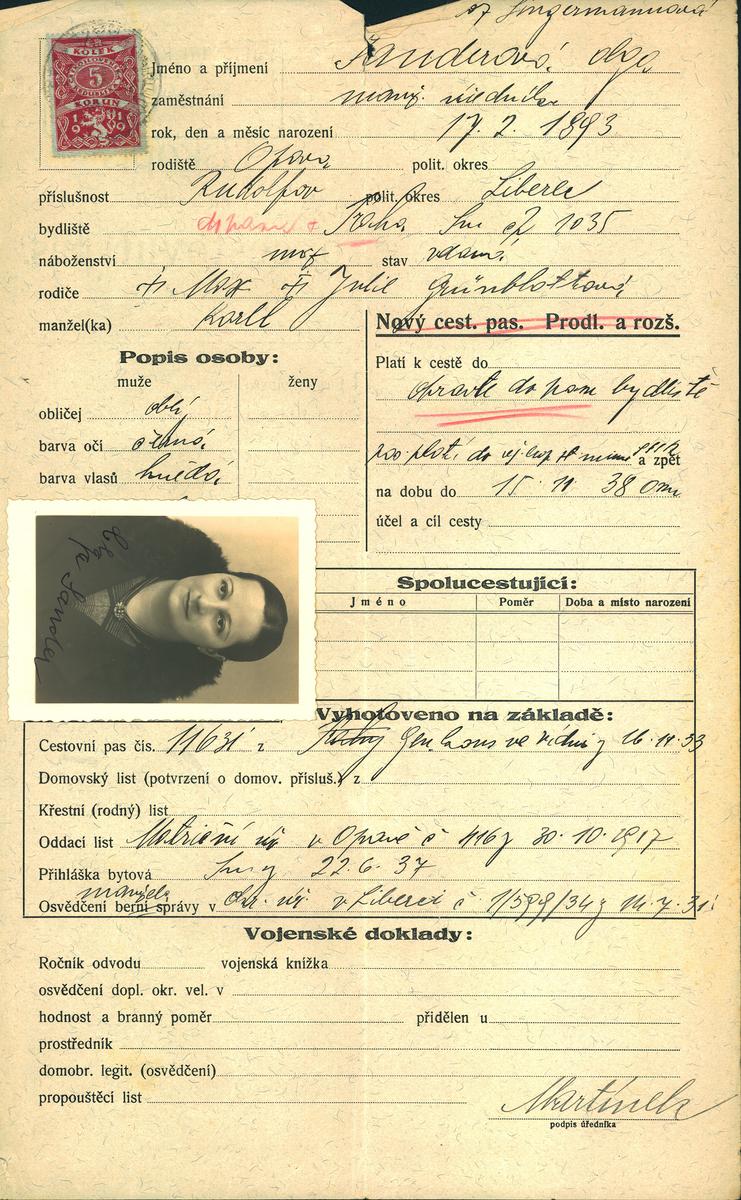 KOLEK
5
KORUN
1919
Jméno a příjmení Sanderová Olga
zaměstnání manž. úředníka
rok, den a měsíc narození 17. 2. 1893
rodiště Opava polit. okres
příslušnost Rudolfov polit. okres Liberec
bydliště Praha Sm čp 1035
náboženství moj stav vdaná
rodiče † Max † Julie Grünblattová
manžel(ka) Karel
Nový cest. pas. Prodl. a rozš.
Popis osoby:
muže ženy
Platí k cestě do
opravte do pasu bydliště
obličej oblý
barva očí černá
pas platí do a zpět
barva vlasů hnědá
na dobu do 15. 11. 38
účel a cíl cesty
Olga Sander
Spolucestující:
Jméno Poměr Doba a místo narození
Vyhotoveno na základě:
Cestovní pas čís. 11631 z Gen. kons ve Vídni z 16. 11. 33
Domovský list (potvrzení o domov. přísluš.) z
Křestní (rodný) list
Oddací list Matriční úř v Opavě č 416 z 30. 10. 1917
Přihláška bytová Sm z 22. 6. 37
manžela
Osvědčení berní správy v okr. úř v Liberci č 1/599/34 z
Vojenské doklady:
Ročník odvodu vojenská knížka
osvědčení dopl. okr. vel. v
hodnost a branný poměr přidělen u
prostředník
domobr. legit. (osvědčení)
propouštěcí list
Martínek
podpis úředníka